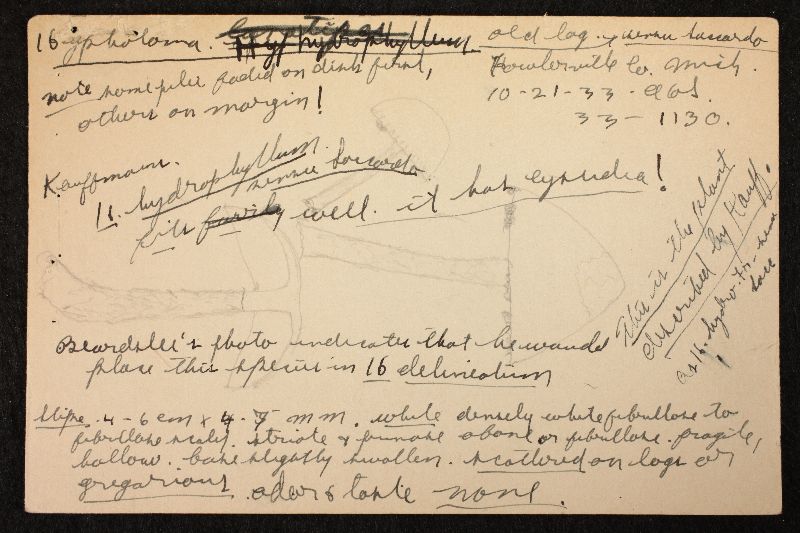 16 ypholoma. hydrophyllum old log. sensu Saccardo
note some pilei faded on disk first,
others on margin!
Fowlerville Co. Mich.
10-21-33 - AHS.
33 - 1130.
Kauffman.
H. hydrophyllum. sensu Saccardo
fits fairly well. it has cystidia!
This is the plant
described by Kauff.
as H. hydro.
Beardslee's photo indicates that he would
place this species in H delineatum
Stipe 4-6 cm x 4-5 mm. white densely white fibrillose to
fibrillose scaly. striate & pruinose above or fibrillose. fragile,
hollow. base slightly swollen. scattered on logs or
gregarious. odor & taste none.